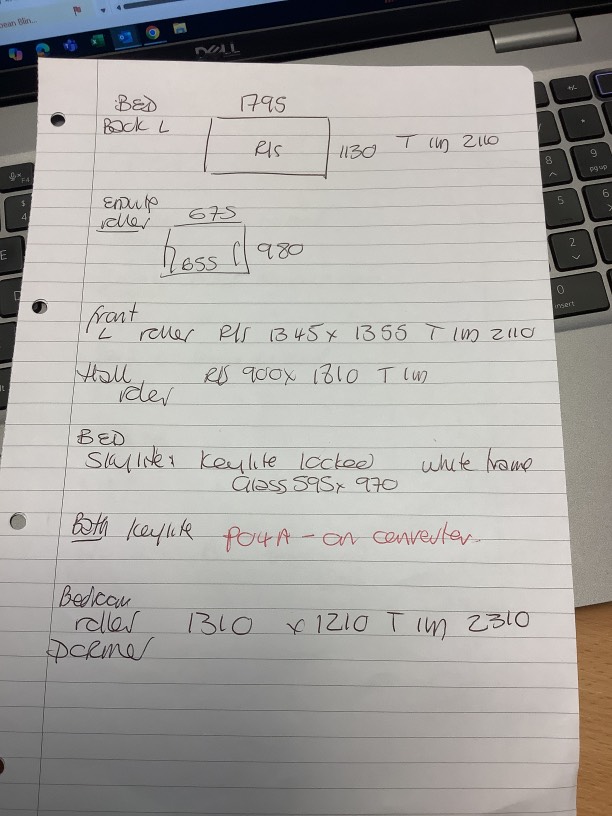 BED 1795
Back L R/S 1130 T 1m 2110
Ensuite
roller 675
655 980
front
L roller R/S 1345 x 1355 T 1m 2110
Hall R/S 900 x 1810 T 1m
roller
BED
Skylite: Keylite locked white frame
Glass 595 x 970
Both Keylite P04A - on converter.
Bedroom
roller 1310 x 1210 T 1m 2310
Dormer
DELL